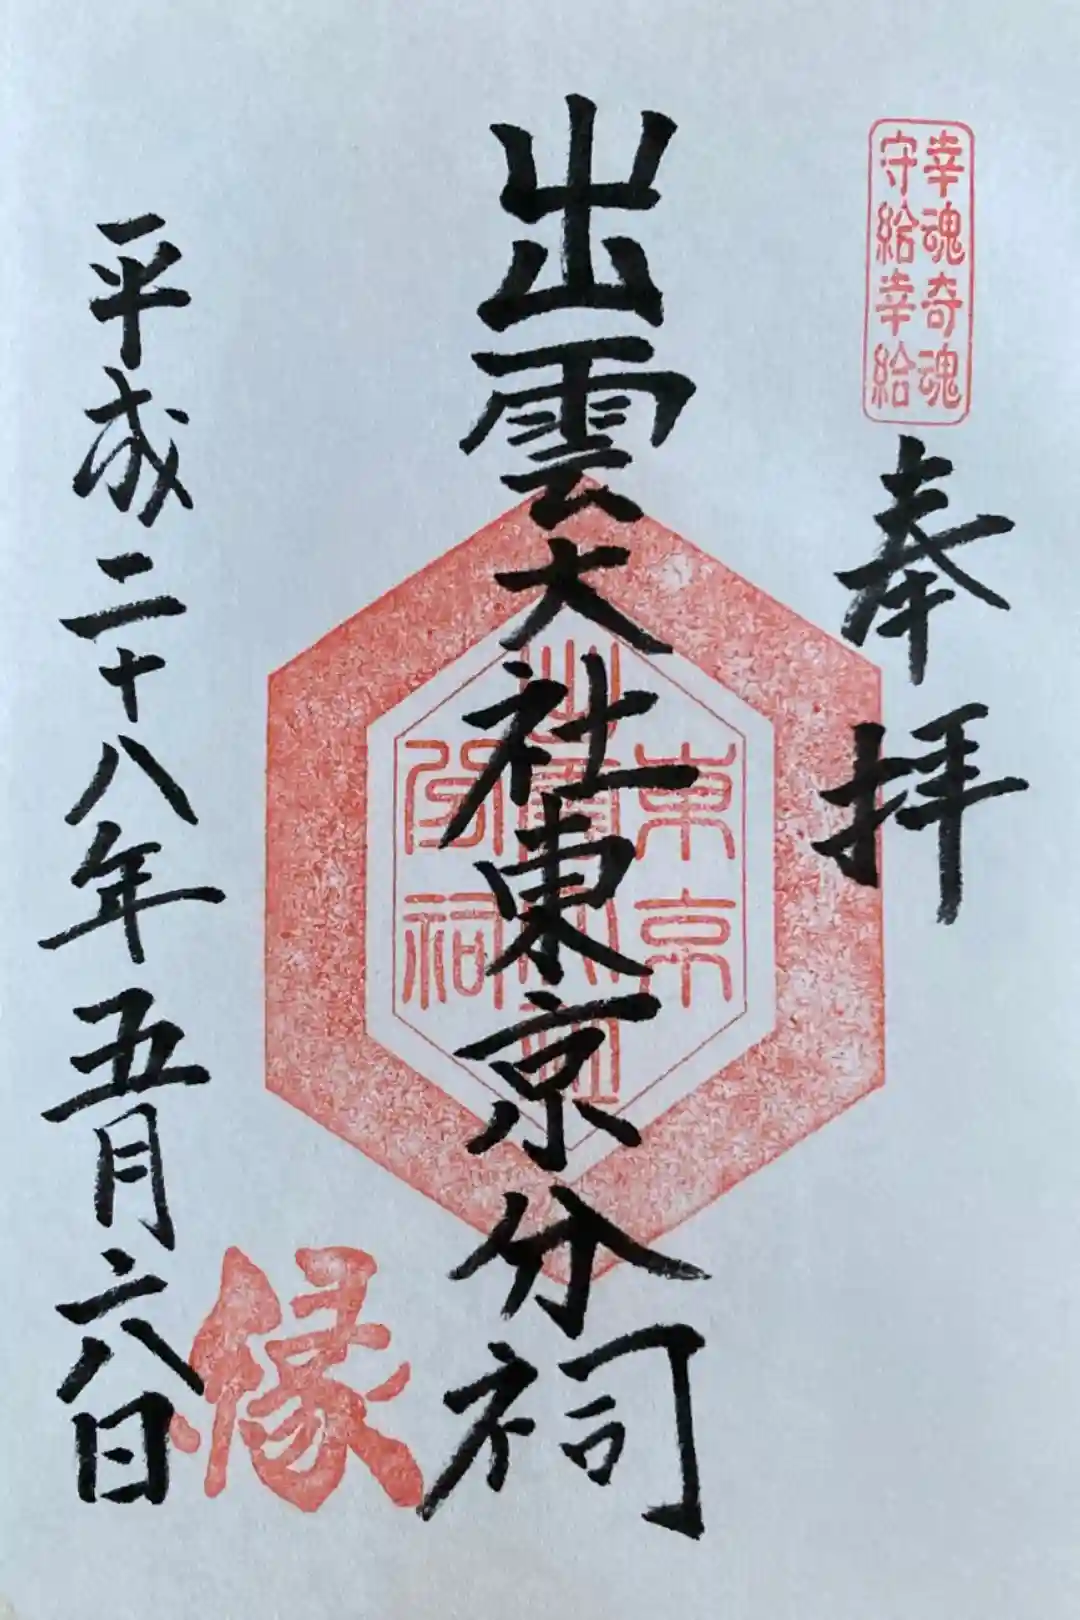 幸魂奇魂
守給幸給
奉拝
出雲大社東京分祠
東京
出雲大社
分祠
縁
平成二十八年五月六日